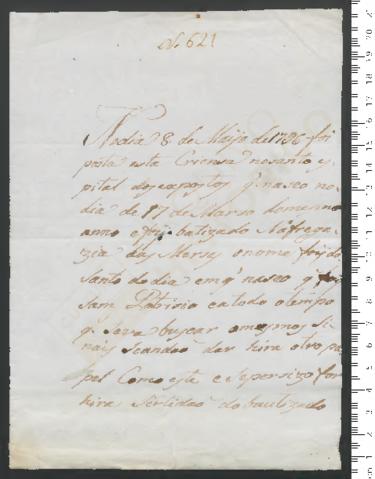 N. 621
No dia 8 de Maijo de 1796 foi
posta esta Criensa no santo y
pital dos expostos q. naseo no
dia de 17 de Marso do mesmo
anno e foi batizado Na frega
zia das Merses o nome foi do
santo do dia em q' naseo q foi
sam Patrisio e a todo o tempo
q. se va buscar o mesmo si
nais se andão dar hira otro pa
pel Como este e se persizo for
hira sertidão do bautizado